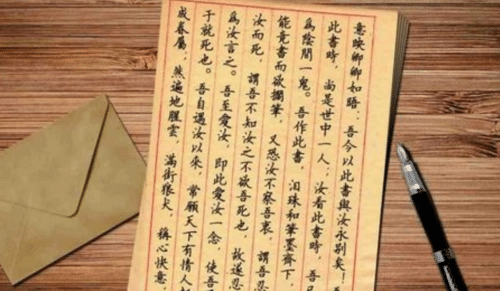 意映卿卿如晤:吾今以此書與汝永別矣!
此書時,尚是世中一人;汝看此書時,吾
爲陰間一鬼。吾作此書,泪珠和筆墨齊下,
能竟書而欲擱筆,又恐汝不察吾衷,謂吾忍
汝而死,謂吾不知汝之不欲吾死也,故遂忍
爲汝言之。吾至愛汝,即此愛汝一念,使吾
于就死也。吾自遇汝以來,常願天下有情人
成眷屬,然遍地腥雲,滿街狼犬,稱心快意